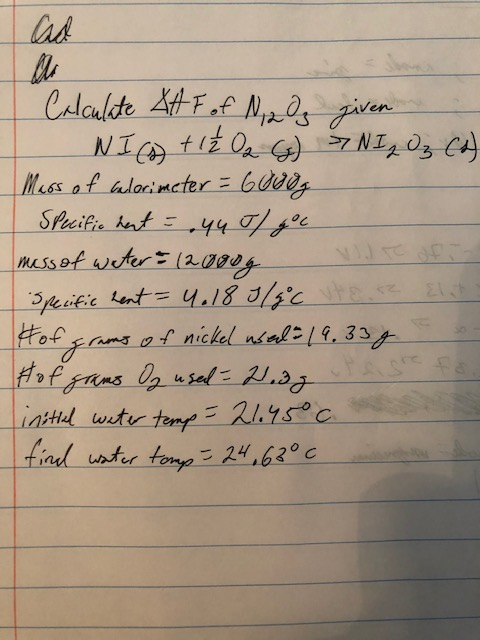 Calculate ΔHF of Ni₂O₃ given
NI(s) + 1½ O₂ (g) → NI₂O₃ (s)
Mass of calorimeter = 6000g
Specific heat = .44 J/g°C
mass of water = 12000g
specific heat = 4.18 J/g°C
# of grams of nickel used = 19.33g
# of grams O₂ used = 21.3g
initial water temp = 21.45°C
final water temp = 24.63°C